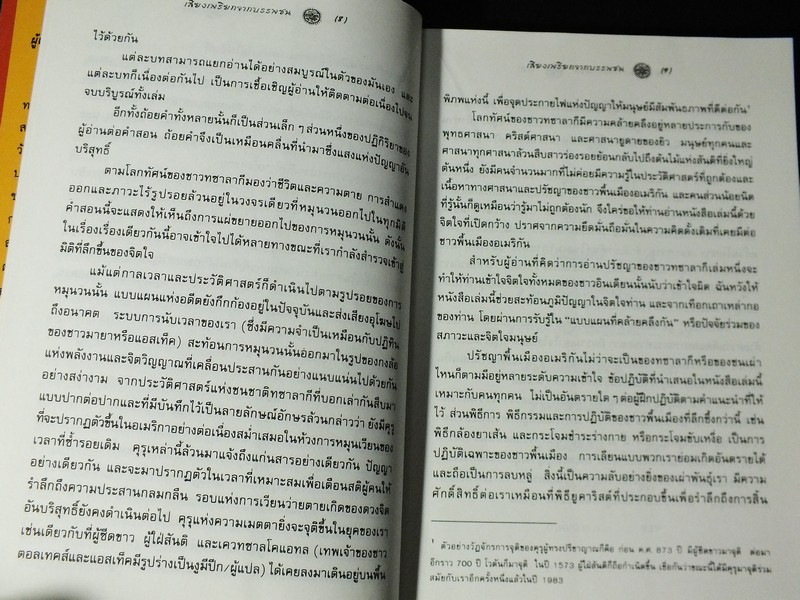 เสียงเพรียกจากบรรพชน (8)
ไว้ด้วยกัน
แต่ละบทสามารถแยกอ่านได้อย่างสมบูรณ์ในตัวของมันเอง และ
แต่ละบทก็เนื่องต่อกันไป เป็นการเชื้อเชิญผู้อ่านให้ติดตามต่อเนื่องไปจน
จบบริบูรณ์ทั้งเล่ม
อีกทั้งถ้อยคำทั้งหลายนั้นก็เป็นส่วนเล็ก ๆ ส่วนหนึ่งของปฏิกิริยาของ
ผู้อ่านต่อคำสอน ถ้อยคำจึงเป็นเหมือนคลื่นที่นำมาซึ่งแสงแห่งปัญญาอัน
บริสุทธิ์
ตามโลกทัศน์ของชาวทซาลาก็มองว่าชีวิตและความตาย การสำแดง
ออกและภาวะไร้รูปรอยล้วนอยู่ในวงจรเดียวที่หมุนวนออกไปในทุกมิติ
คำสอนนี้จะแสดงให้เห็นถึงการแผ่ขยายออกไปของการหมุนวนนั้น ดังนั้น
ในเรื่องเรื่องเดียวกันนี้อาจเข้าใจไปได้หลายทางขณะที่เรากำลังสำรวจเข้าสู่
มิติที่ลึกขึ้นของจิตใจ
แม้แต่กาลเวลาและประวัติศาสตร์ก็ดำเนินไปตามรูปรอยของการ
หมุนวนนั้น แบบแผนแห่งอดีตยังกึกก้องอยู่ในปัจจุบันและส่งเสียงอุโฆษไป
ถึงอนาคต ระบบการนับเวลาของเรา (ซึ่งมีความจำเป็นเหมือนกับปฏิทิน
ของชาวมายาหรือแอสเท็ค) สะท้อนการหมุนวนนั้นออกมาในรูปของกงล้อ
แห่งพลังงานและจิตวิญญาณที่เคลื่อนประสานกันอย่างแนบแน่นไปด้วยกัน
อย่างสง่างาม จากประวัติศาสตร์แห่งชนชาติทซาลากีที่บอกเล่ากันสืบมา
แบบปากต่อปากและที่มีบันทึกไว้เป็นลายลักษณ์อักษรล้วนกล่าวว่า ยังมีคุรุ
ที่จะปรากฏตัวขึ้นในอเมริกาอย่างต่อเนื่องสม่ำเสมอในห้วงการหมุนเวียนของ
เวลาที่ซ้ำรอยเดิม คุรุเหล่านี้ล้วนมาแจ้งถึงแก่นสารอย่างเดียวกัน ปัญญา
อย่างเดียวกัน และจะมาปรากฏตัวในเวลาที่เหมาะสมเพื่อเตือนสติผู้คนให้
รำลึกถึงความประสานกลมกลืน รอบแห่งการเวียนว่ายตายเกิดของดวงจิต
อันบริสุทธิ์ยังคงดำเนินต่อไป คุรุแห่งความเมตตายิ่งจะจุติขึ้นในยุคของเรา
เช่นเดียวกับที่ผู้ซีดขาว ผู้ใฝ่สันติ และเควทซาลโคแอทล (เทพเจ้าของชาว
ตอลเทคส์และแอสเท็คมีรูปร่างเป็นงูมีปีก/ผู้แปล) ได้เคยลงมาเดินอยู่บนพื้น
เสียงเพรียกจากบรรพชน (9)
พิภพแห่งนี้ เพื่อจุดประกายไฟแห่งปัญญาให้มนุษย์มีสัมพันธภาพที่ดีต่อกัน¹
โลกทัศน์ของชาวทซาลากีมีความคล้ายคลึงอยู่หลายประการกับของ
พุทธศาสนา คริสต์ศาสนา และศาสนายูดายของยิว มนุษย์ทุกคนและ
ศาสนาทุกศาสนาล้วนสืบสาวร่องรอยย้อนกลับไปถึงต้นไม้แห่งสันติที่ยิ่งใหญ่
ต้นหนึ่ง ยังมีคนจำนวนมากที่ไม่ค่อยมีความรู้ในประวัติศาสตร์ที่ถูกต้องและ
เนื้อหาทางศาสนาและปรัชญาของชาวพื้นเมืองอเมริกัน และคนส่วนน้อยนิด
ที่รู้นั้นก็ดูเหมือนว่ารู้มาไม่ถูกต้องนัก จึงใคร่ขอให้ท่านอ่านหนังสือเล่มนี้ด้วย
จิตใจที่เปิดกว้าง ปราศจากความยึดมั่นถือมั่นในความคิดดั้งเดิมที่เคยมีต่อ
ชาวพื้นเมืองอเมริกัน
สำหรับผู้อ่านที่คิดว่าการอ่านปรัชญาของชาวทซาลากีเล่มหนึ่งจะ
ทำให้ท่านเข้าใจจิตใจทั้งหมดของชาวอินเดียนนั้นนับว่าเข้าใจผิด ฉันหวังให้
หนังสือเล่มนี้ช่วยสะท้อนภูมิปัญญาในจิตใจท่าน และจากเทือกเถาเหล่ากอ
ของท่าน โดยผ่านการรับรู้ใน "แบบแผนที่คล้ายคลึงกัน" หรือปัจจัยร่วมของ
สภาวะและจิตใจมนุษย์
ปรัชญาพื้นเมืองอเมริกันไม่ว่าจะเป็นของทซาลากีหรือของชนเผ่า
ไหนก็ตามมีอยู่หลายระดับความเข้าใจ ข้อปฏิบัติที่นำเสนอในหนังสือเล่มนี้
เหมาะกับคนทุกคน ไม่เป็นอันตรายใด ๆ ต่อผู้ฝึกปฏิบัติตามคำแนะนำที่ให้
ไว้ ส่วนพิธีการ พิธีกรรมและการปฏิบัติของชาวพื้นเมืองที่ลึกซึ้งกว่านี้ เช่น
พิธีกล้องยาเส้น และกระโจมชำระร่างกาย หรือกระโจมขับเหงื่อ เป็นการ
ปฏิบัติเฉพาะของชาวพื้นเมือง การเลียนแบบพวกเราย่อมเกิดอันตรายได้
และถือเป็นการลบหลู่ สิ่งนี้เป็นความลับอย่างยิ่งของเผ่าพันธุ์เรา มีความ
ศักดิ์สิทธิ์ต่อเราเหมือนที่พิธียูคาริสต์ที่ประกอบขึ้นเพื่อรำลึกถึงการสิ้น
¹ ตัวอย่างวัฏจักรการจุติของคุรุผู้ทรงปรีชาญาณก็คือ ก่อน ค.ศ. 873 ปี มีผู้ซีดขาวมาจุติ ต่อมา
อีกราว 700 ปี โวตันก็มาจุติ ในปี 1573 ผู้ใฝ่สันติก็ถือกำเนิดขึ้น เชื่อกันว่าขณะนี้ได้มีคุรุมาจุติร่วม
สมัยกับเราอีกครั้งหนึ่งแล้วในปี 1983